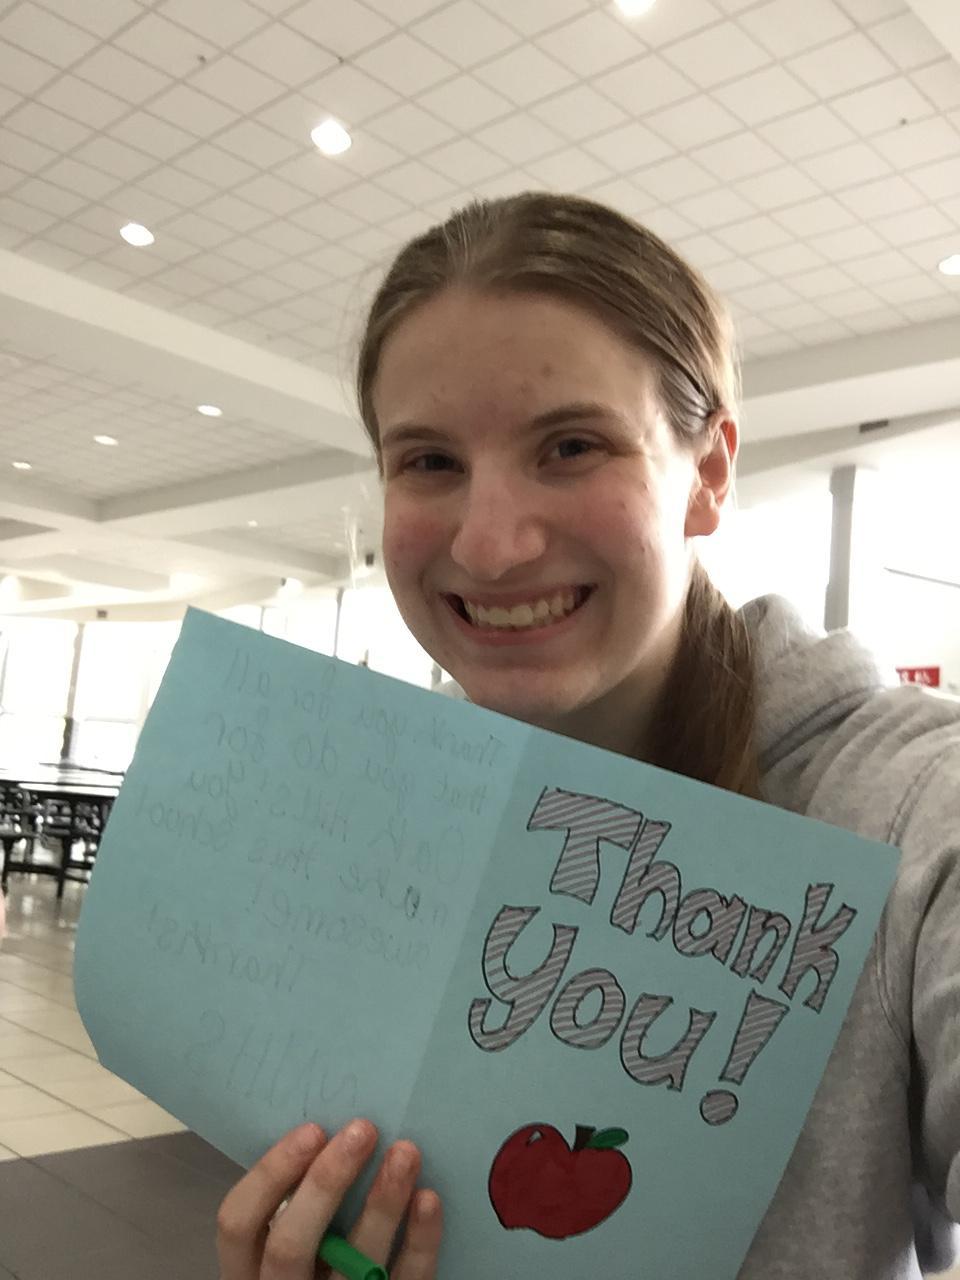 Thank you for all
that you do for
Oak Hills! You
make this school
awesome!
Thanks!
NHS
Thank
you!